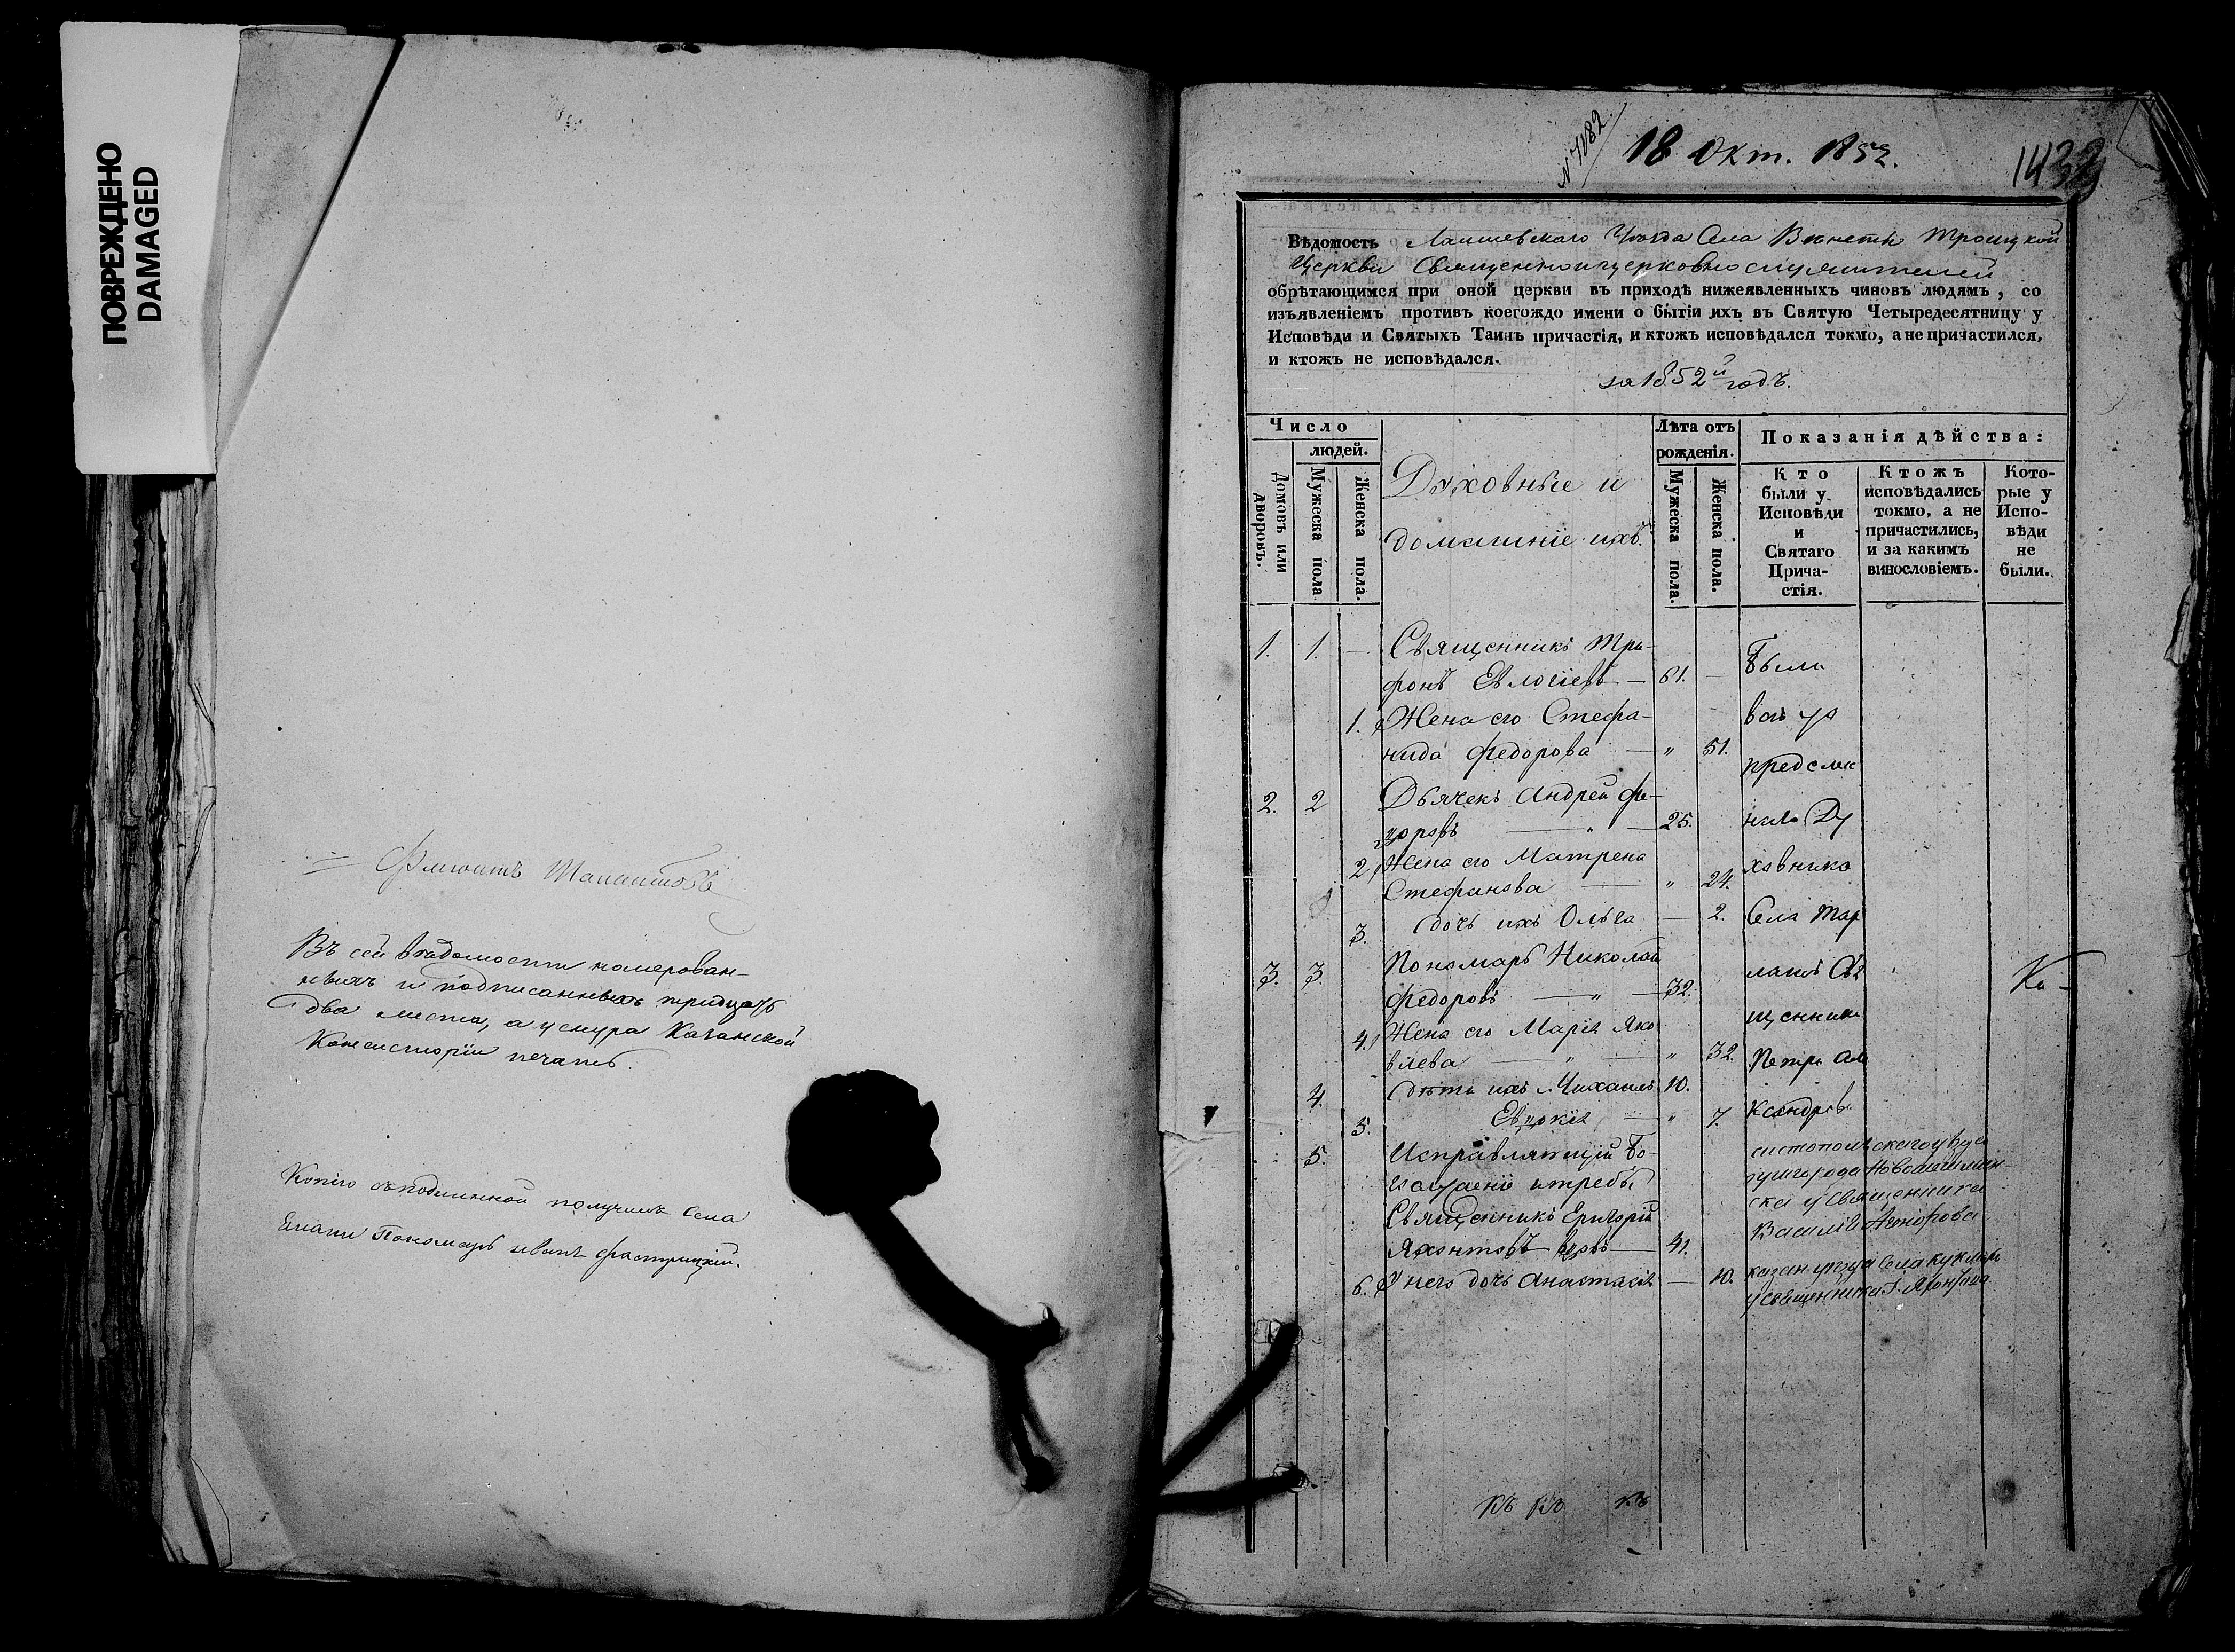 ПОВРЕЖДЕНО
DAMAGED
Въ сей ведомости номерован-
ныхъ и подписанныхъ тридцать
два листа, а у снура Казанской
Консисторіи печать.
Копію съ подлинной получилъ Села
Епани Пономарь
N 7182
18 Окт. 1852.
Вѣдомость Лаишевскаго Уѣзда Села Троицкой
Церкви Священноицерковнослужителей
обрѣтающимся при оной церкви въ приходѣ нижеявленныхъ чиновъ людямъ, со
изъявленіемъ противъ коегождо имени о бытіи ихъ въ Святую Четыредесятницу у
Исповѣди и Святыхъ Таинъ причастія, и ктожъ исповѣдался токмо, а не причастился,
и ктожъ не исповѣдался.
за 1852й годъ.
Число
людей.
Домовъ или дворовъ.
Мужеска пола
Женска пола.
Духовные и
домашніе ихъ.
Лѣта отъ
рожденія.
Мужеска пола.
Женска пола.
Показанія дѣйства:
Кто
были у
Исповѣди
и
Святаго
Прича-
стія.
Ктожъ
исповѣдались
токмо, а не
причастились,
и за какимъ
винословіемъ.
Кото-
рые у
Испо-
вѣди
не
были.
1. 1. — Священникъ Три-
фонъ Евлогіевъ — 61. — Были
1. Жена его Стефа-
нида Федорова — " 51.
2. 2 Дьячекъ Андрей Фе-
доровъ — " — 25.
2. Жена его Матрена
Стефанова — " 24. ховника
3. дочь ихъ Ольга — 2. Села
3. 3. Пономарь Николай
Федоровъ — " — 32. Ка-
4. Жена его Марія Яко
влева — " — " 32. Петра Але
4. дѣти ихъ Михаилъ 10.
5. Евдокія — " 7. ксандрова
5. Исправляющій Бо-
гослуженіе и требы
Священникъ Григорій
Яхонтовъ вдовъ — 41.
6. У него дочь Анастасія — 10.
чистопольскаго уѣзда
пригорода Новошешмин-
ска у Священника
Василія
казан уѣзда Села Кукмара
у священника Г. Яхонтова